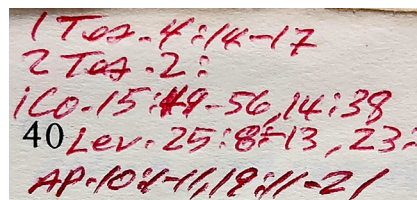 1 Tes. 4:14-17
2 Tes. 2:
1Co. 15:49-56, 14:38
40 Lev. 25:8-13, 23:
AP. 10:1-11, 19:11-21